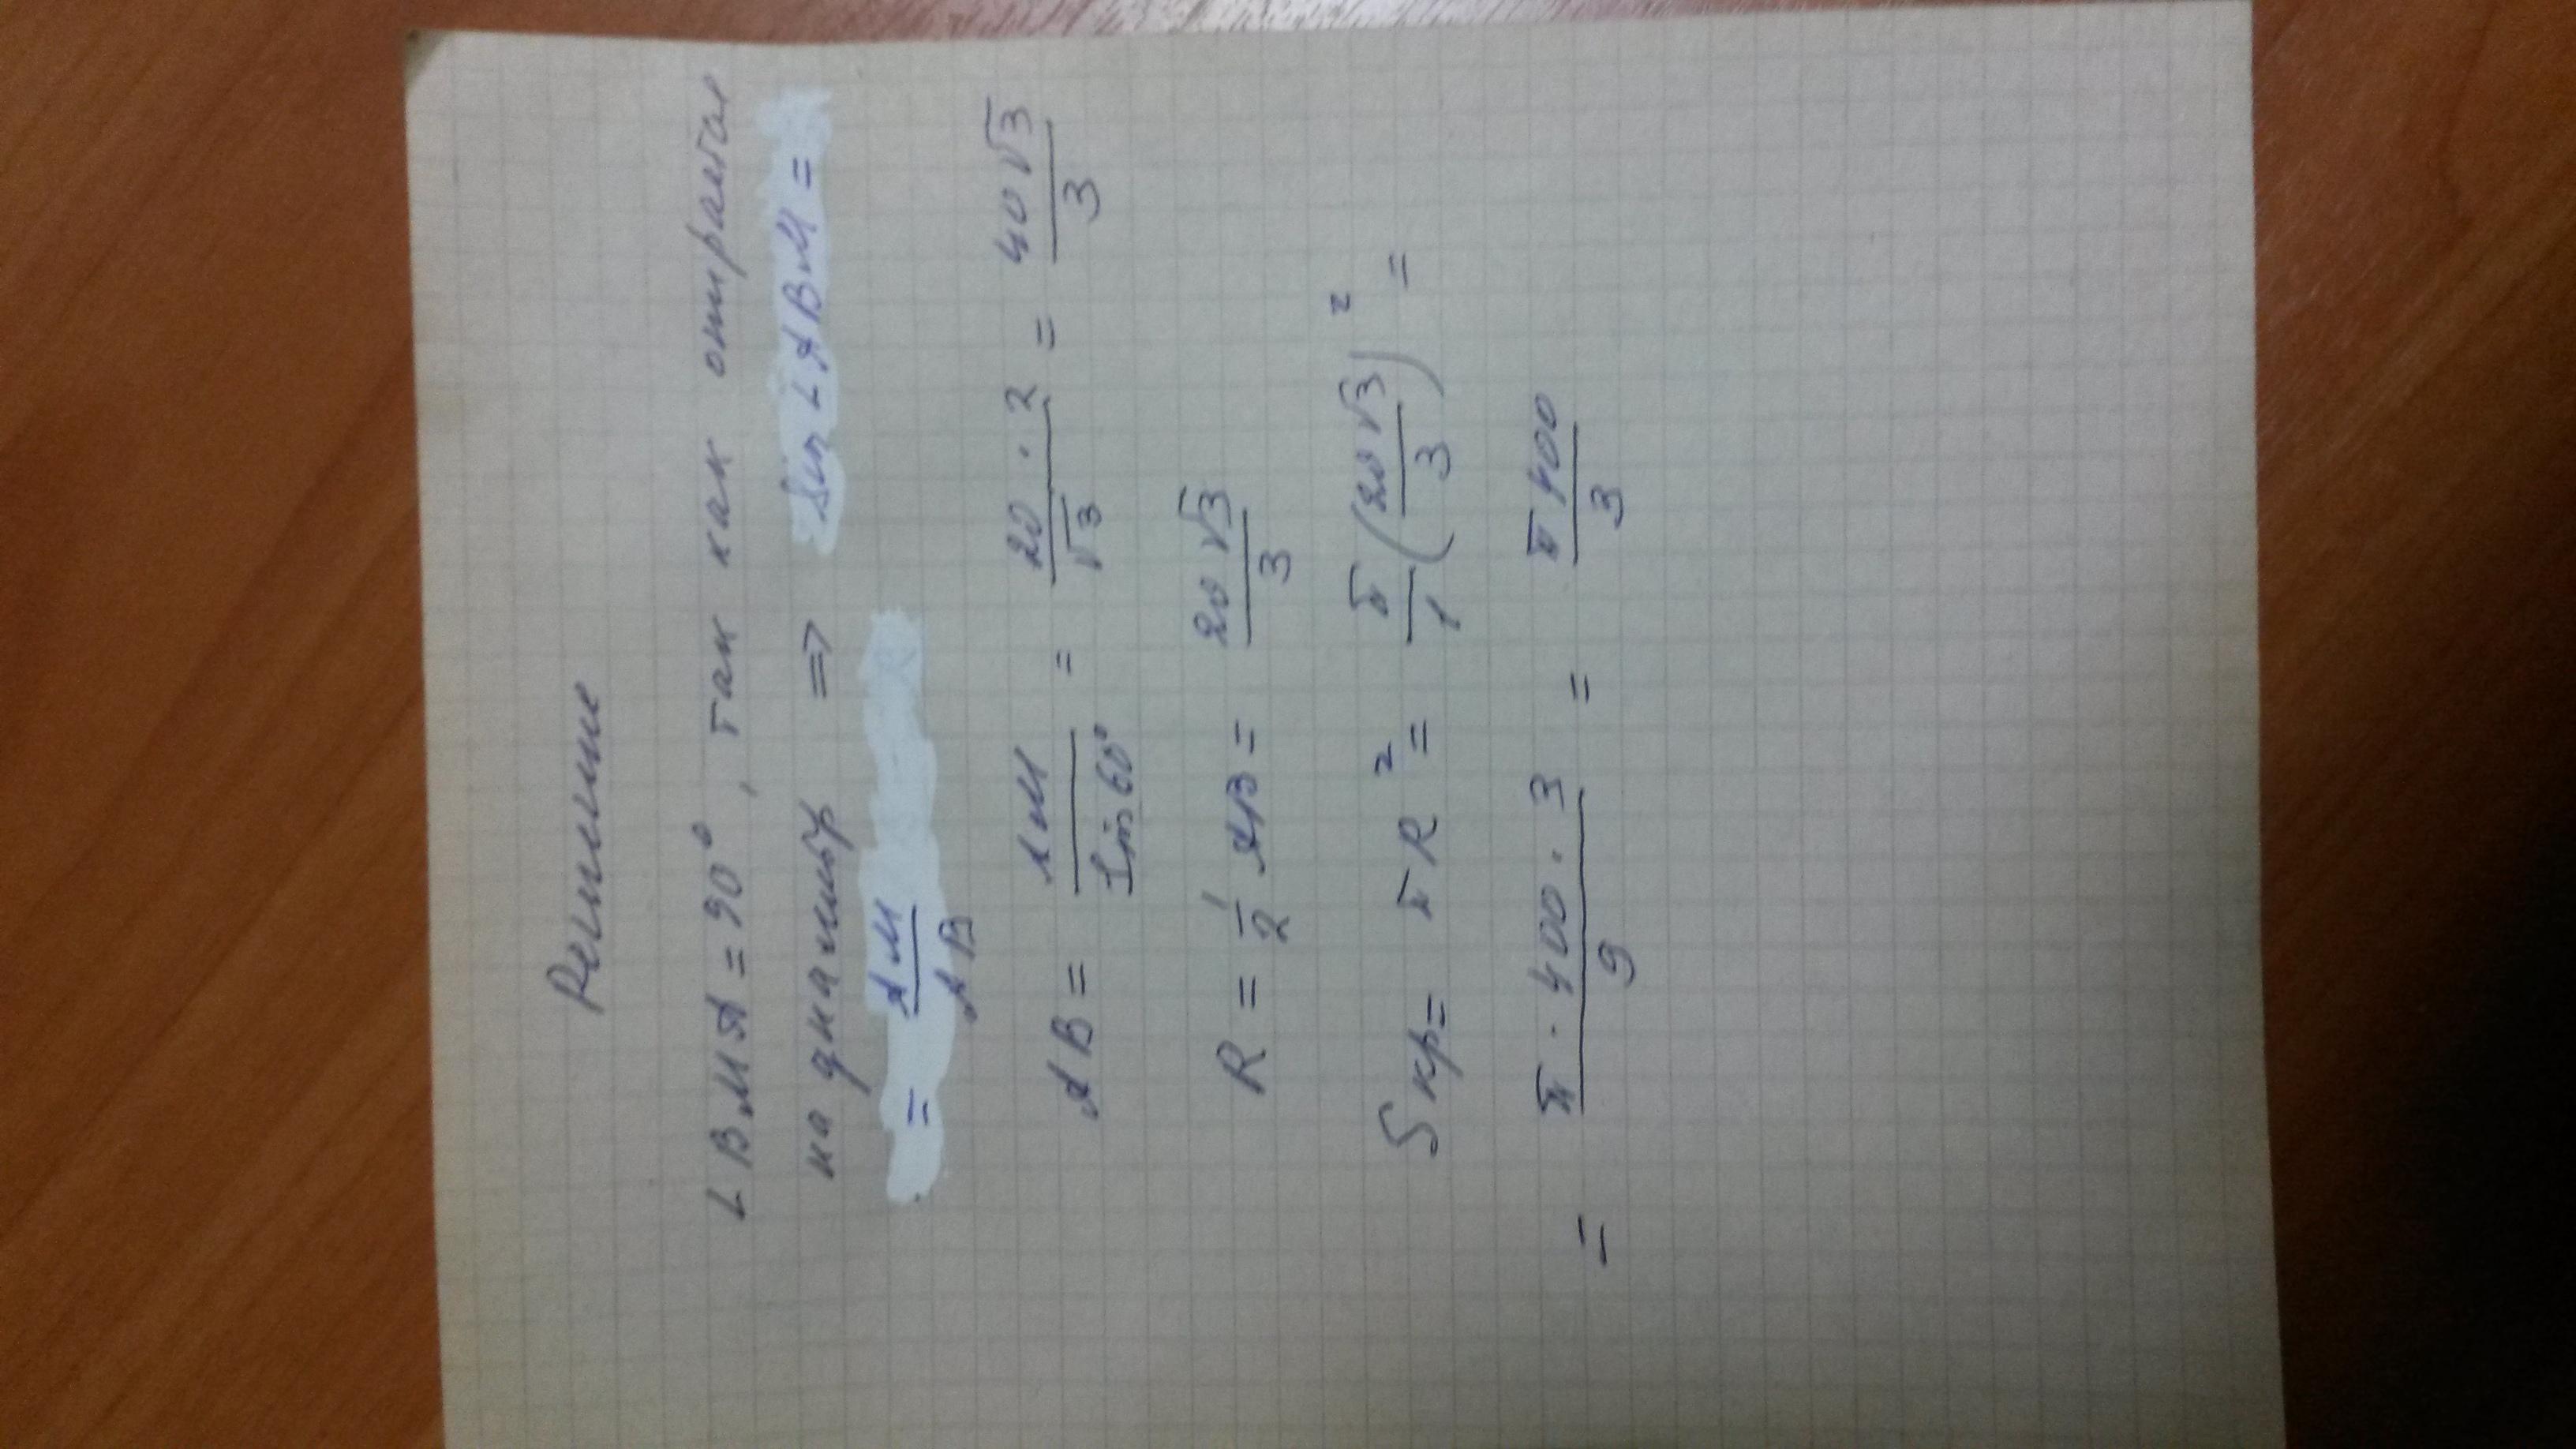 Решение
∠ ВМА = 90°, так как опирается
на диаметр => Sin ∠ АВМ =
= АМ/АВ
АВ = АМ/Sin 60° = 20 · 2/√3 = 40√3/3
R = 1/2 АВ = 20√3/3
Sкр = πR² = π/1 (20√3/3)² =
= π · 400 · 3/9 = π 400/3